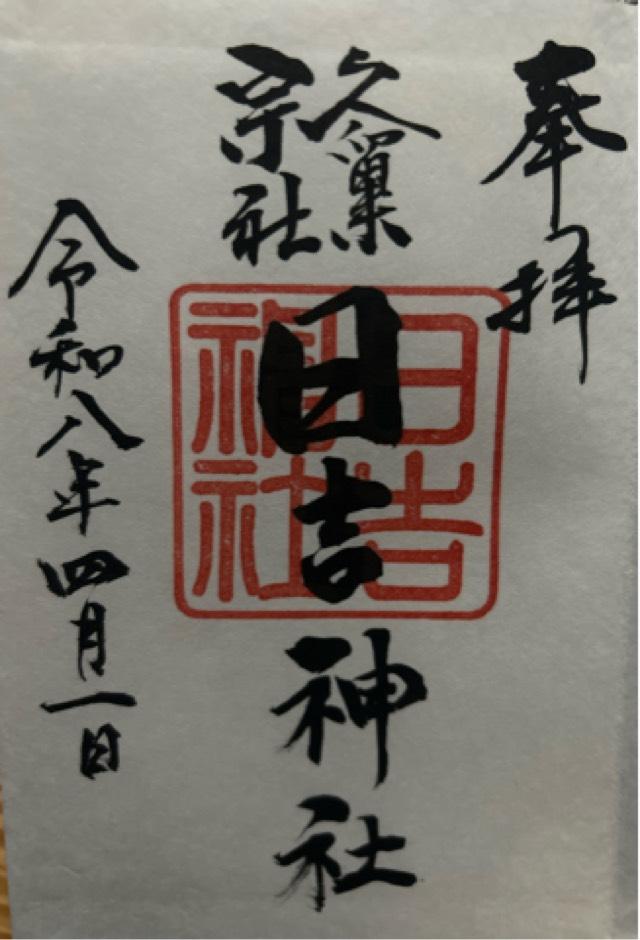 奉拝
久巣
宗社
日吉神社
日吉
神社
令和八年四月一日